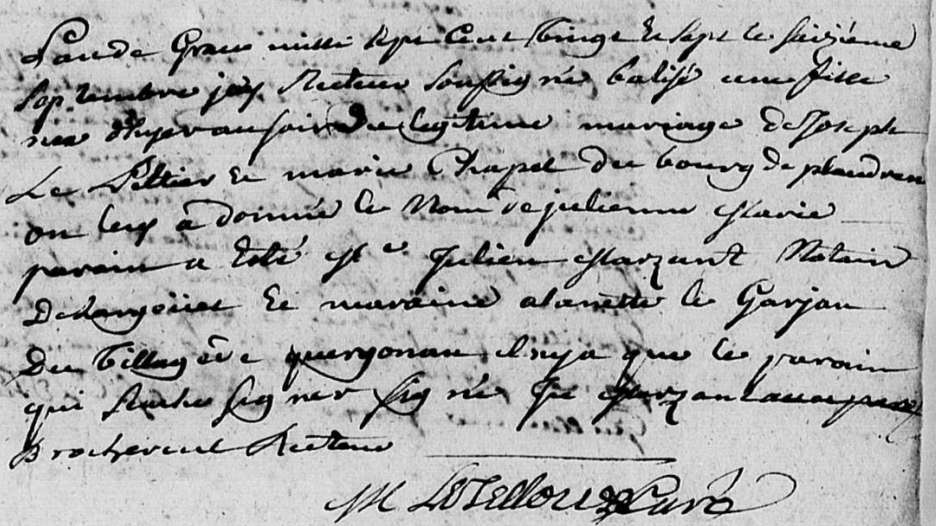 Lan de Grace mille sept Cent vingt et sept le sixiéme
Septembre jey Recteur Soussigné batisé une fille
née d'hyer au soir Du legitime mariage de Joseph
Le Peltier et marie Chapel du bourg de plaudren
on luy a donné le Nom de julienne Marie
parain a esté Mr Julien Marzant Notaire
De Largoüet et maraine le Garjan
Du village de quergonan il nya que le parain
qui signer signé Marzant
Recteur
Curé